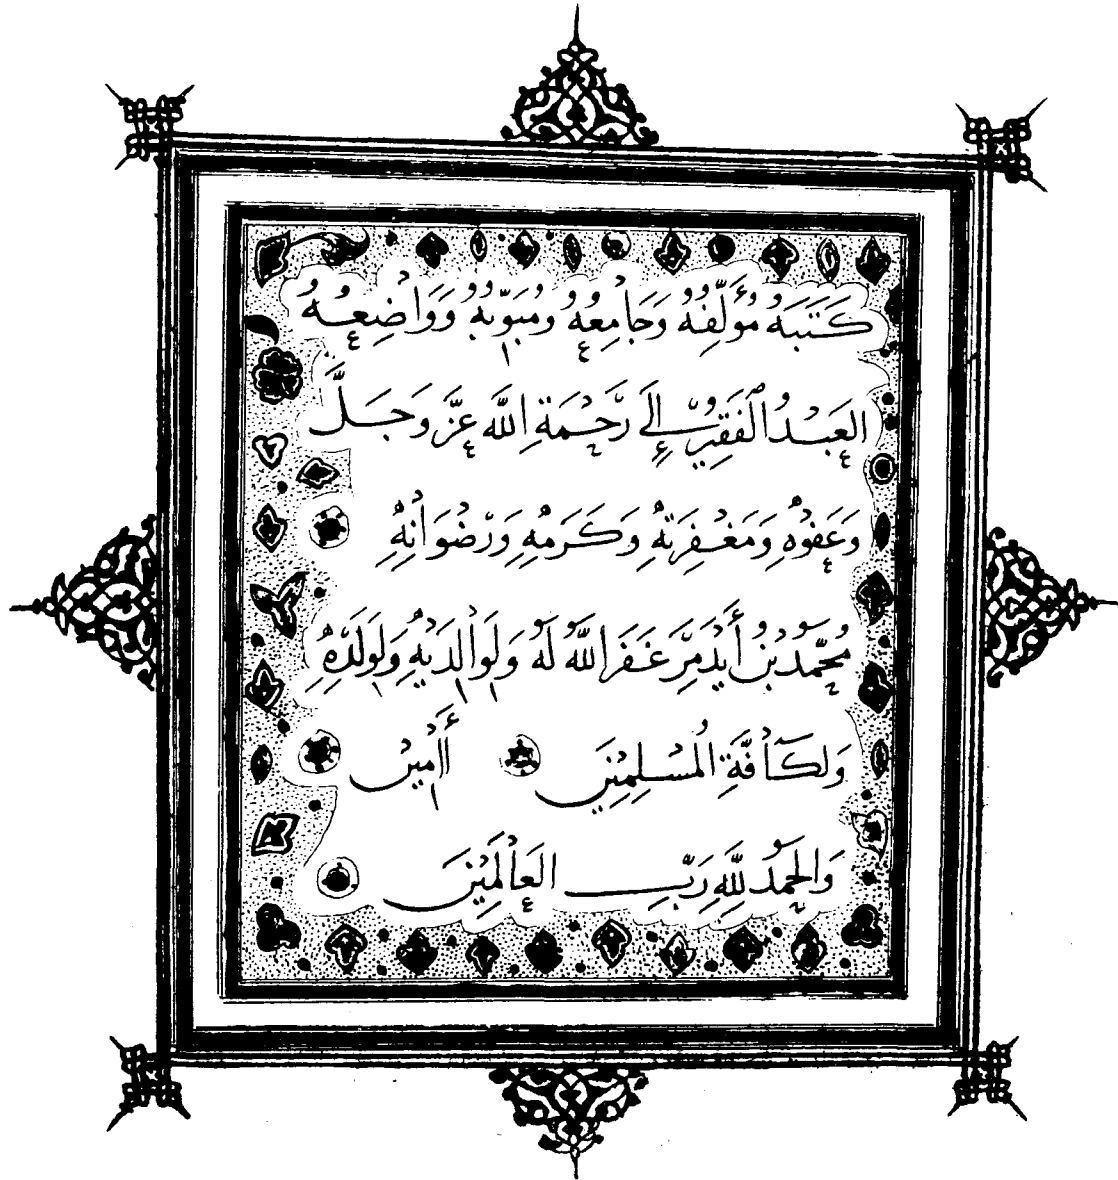 كَتَبَهُ مُؤَلِّفُهُ وَجَامِعُهُ وَمُبَوِّبُهُ وَوَاضِعُهُ
العَبْدُ الْفَقِيرُ إِلَى رَحْمَةِ اللَّهِ عَزَّ وَجَلَّ
وَعَفْوِهِ وَمَغْفِرَتِهِ وَكَرَمِهِ وَرِضْوَانِهِ
مُحَمَّدُ بْنُ أَيْدَمُرَ غَفَرَ اللَّهُ لَهُ وَلِوَالِدَيْهِ وَلِوَلَدِهِ
وَلِكَافَّةِ الْمُسْلِمِينَ أَامِين
وَالْحَمْدُ لِلَّهِ رَبِّ العَالَمِينَ